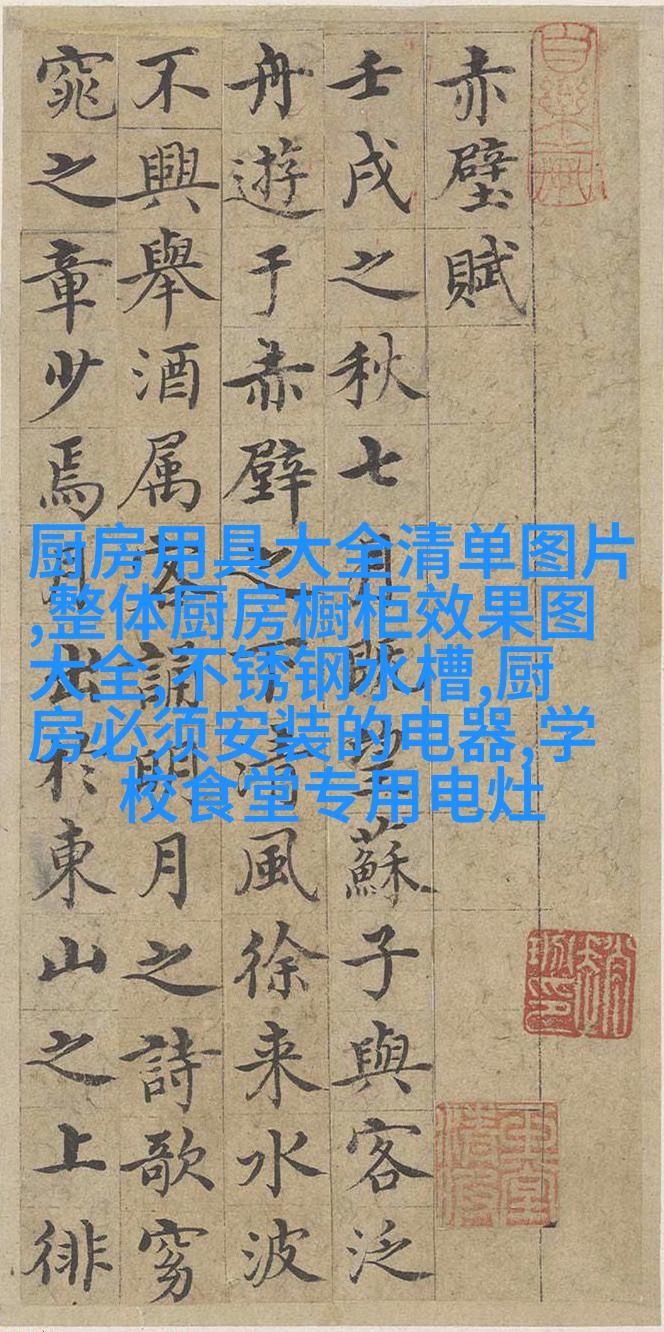 赤壁賦
壬戌之秋七月既望蘇子與客泛
舟遊于赤壁之下清風徐来水波
不興舉酒属客誦明月之詩歌窈
窕之章少焉月出於東山之上徘
厨房用具大全清单图片
,整体厨房橱柜效果图
大全,不锈钢水槽,厨
房必须安装的电器,学
校食堂专用电灶